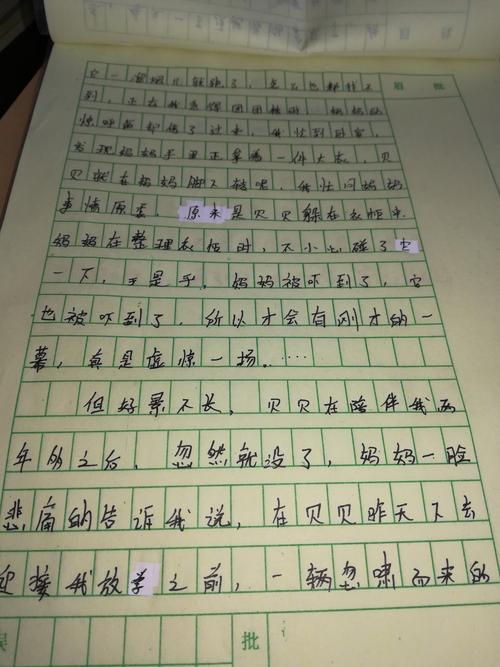 它一溜烟儿就跑了，怎么也都找不
到，正在我急得团团转时，妈妈的
惊呼声却传了过来，我忙到卧室，
发现妈妈手里正拿着一件大衣，贝
贝就在妈妈脚下转呢，我忙问妈妈
事情原委，原来是贝贝躲在衣柜里
妈妈在整理衣柜时，不小心碰了它
一下，于是乎，妈妈被吓到了，它
也被吓到了，所以才会有刚才的一
幕，真是虚惊一场。……
但好景不长，贝贝在陪伴我两
年的之后，忽然就没了，妈妈一脸
悲痛的告诉我说，在贝贝昨天下去
迎接我放学之前，一辆忽啸而来的
眉批
批